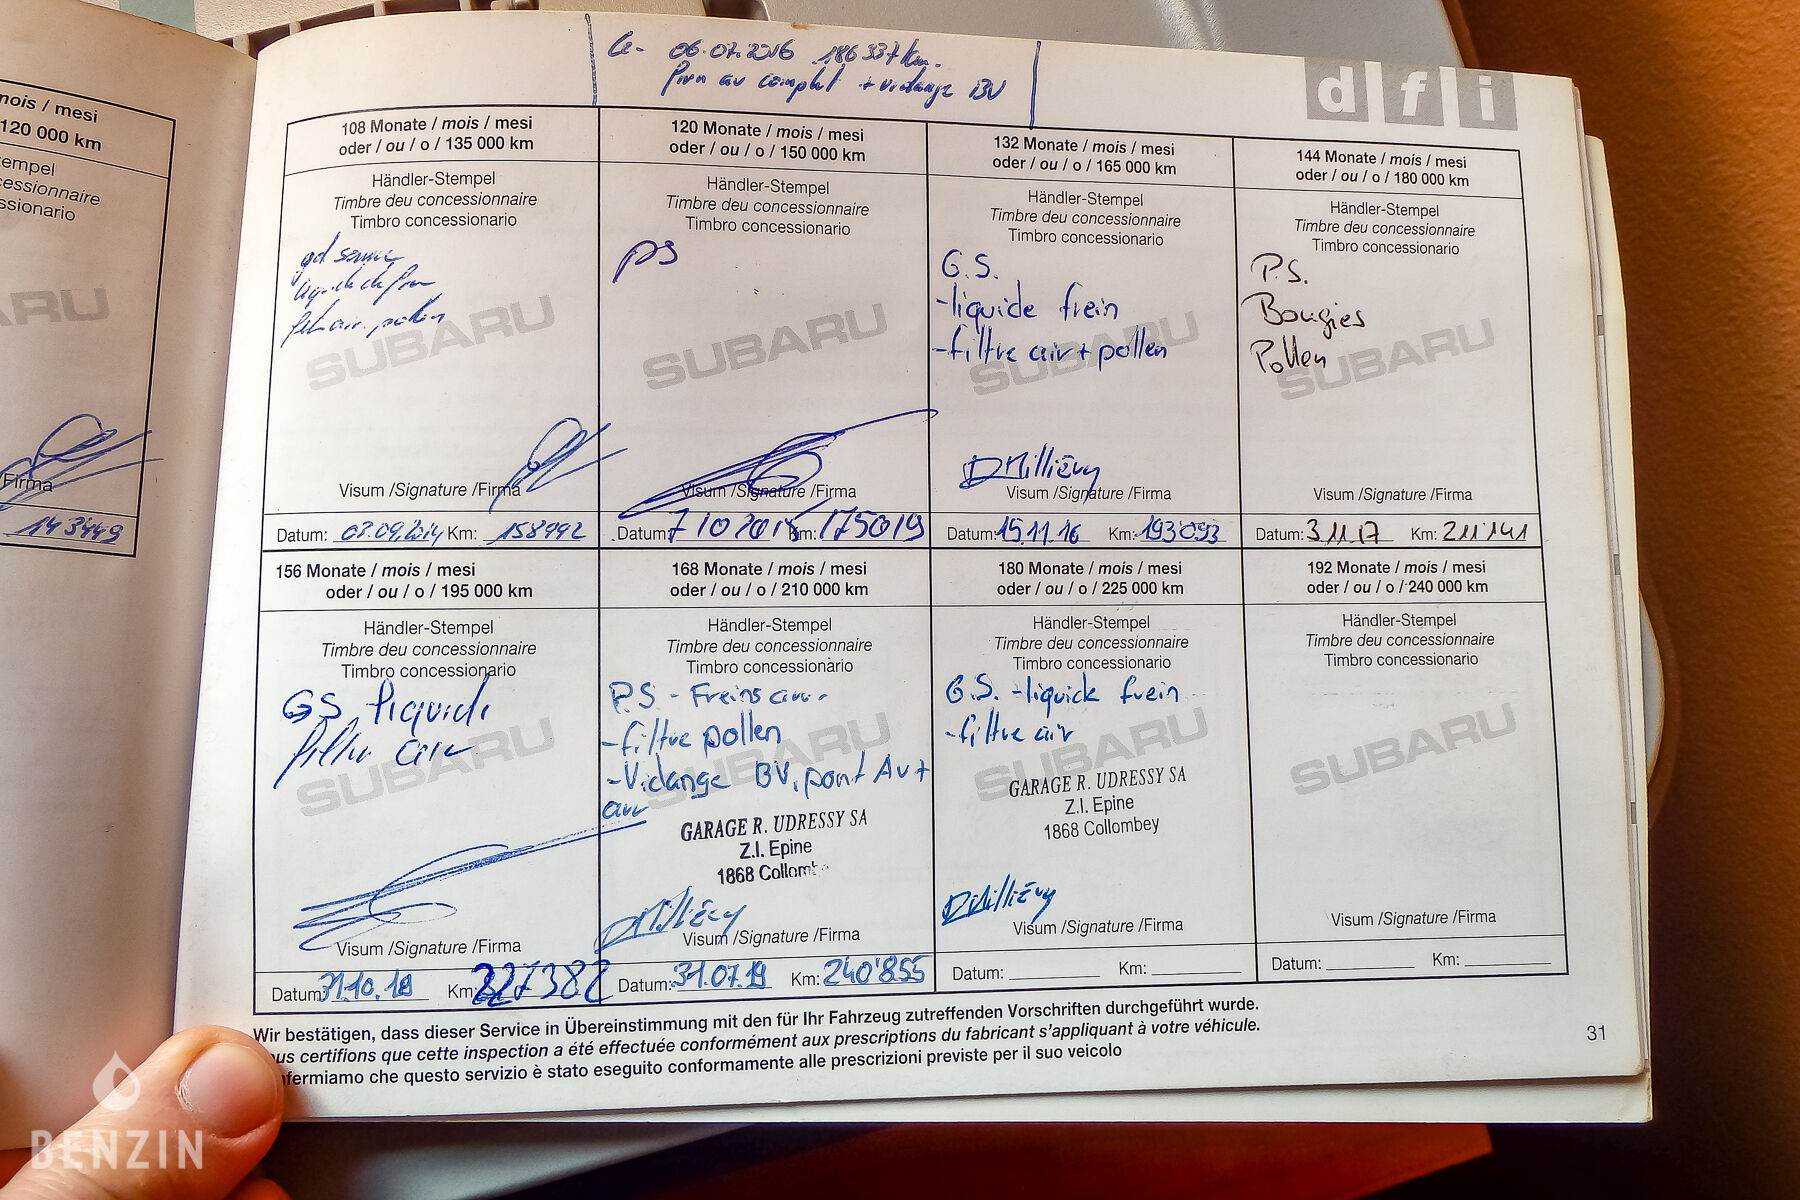 mois / mesi
120 000 km
Firma
143449
06.07.2016 186337 km.
au complet + vidange BV
dfi
108 Monate / mois / mesi
oder / ou / o / 135 000 km
Händler-Stempel
Timbre deu concessionnaire
Timbro concessionario
liquide de frein
pollen
SUBARU
Visum /Signature /Firma
Datum: 03.09.2014 Km: 158992
120 Monate / mois / mesi
oder / ou / o / 150 000 km
Händler-Stempel
Timbre deu concessionnaire
Timbro concessionario
PS
SUBARU
Visum /Signature /Firma
Datum: 7 10 2015 Km: 175019
132 Monate / mois / mesi
oder / ou / o / 165 000 km
Händler-Stempel
Timbre deu concessionnaire
Timbro concessionario
G.S.
-liquide frein
-filtre air + pollen
SUBARU
Visum /Signature /Firma
Datum: 15.11.16 Km: 193'093
144 Monate / mois / mesi
oder / ou / o / 180 000 km
Händler-Stempel
Timbre deu concessionnaire
Timbro concessionario
P.S.
Bougies
Pollen
SUBARU
Visum /Signature /Firma
Datum: 3.11.17 Km: 211141
156 Monate / mois / mesi
oder / ou / o / 195 000 km
Händler-Stempel
Timbre deu concessionnaire
Timbro concessionario
GS liquide
filtre air
SUBARU
Visum /Signature /Firma
Datum: 31.10.18 Km: 227382
168 Monate / mois / mesi
oder / ou / o / 210 000 km
Händler-Stempel
Timbre deu concessionnaire
Timbro concessionario
P.S - Freins arr.
-filtre pollen
-Vidange BV, pont Av +
arr
SUBARU
GARAGE R. UDRESSY SA
Z.I. Epine
1868 Collomb
Visum /Signature /Firma
Datum: 31.07.19 Km: 240'855
180 Monate / mois / mesi
oder / ou / o / 225 000 km
Händler-Stempel
Timbre deu concessionnaire
Timbro concessionario
G.S. -liquide frein
-filtre air
SUBARU
GARAGE R. UDRESSY SA
Z.I. Epine
1868 Collombey
Visum /Signature /Firma
Datum: Km:
192 Monate / mois / mesi
oder / ou / o / 240 000 km
Händler-Stempel
Timbre deu concessionnaire
Timbro concessionario
SUBARU
Visum /Signature /Firma
Datum: Km:
Wir bestätigen, dass dieser Service in Übereinstimmung mit den für Ihr Fahrzeug zutreffenden Vorschriften durchgeführt wurde.
ous certifions que cette inspection a été effectuée conformément aux prescriptions du fabricant s'appliquant à votre véhicule.
nfermiamo che questo servizio è stato eseguito conformamente alle prescrizioni previste per il suo veicolo
31
BENZIN